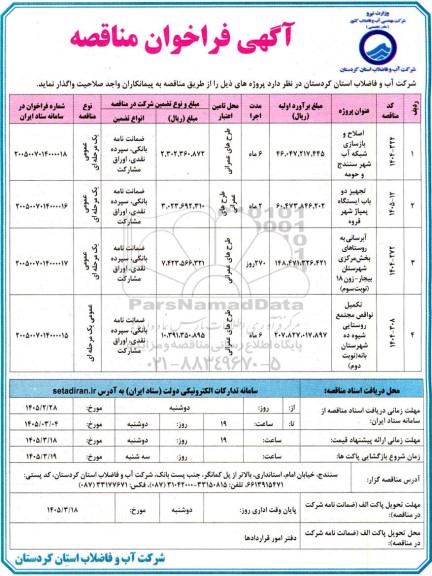 وزارت نیرو
شرکت مهندسی آب و فاضلاب کشور
(مادر تخصصی)
شرکت آب و فاضلاب استان کردستان
آگهی فراخوان مناقصه
شرکت آب و فاضلاب استان کردستان در نظر دارد پروژه های ذیل را از طریق مناقصه به پیمانکاران واجد صلاحیت واگذار نماید.
ردیف | کد مناقصه | عنوان پروژه | مبلغ برآورد اولیه (ریال) | مدت اجرا | محل تامین اعتبار | مبلغ و نوع تضمین شرکت در مناقصه | نوع مناقصه | شماره فراخوان در سامانه ستاد ایران
مبلغ (ریال) | انواع تضمین
۱ | ۱۴۰۴-۳۲۴ | اصلاح و بازسازی شبکه آب شهر سنندج و حومه | ۴۶،۰۴۷،۲۱۷،۴۴۵ | ۶ ماه | طرح های عمرانی | ۲،۳۰۲،۳۶۰،۸۷۲ | ضمانت نامه بانکی، سپرده نقدی، اوراق مشارکت | عمومی یک مرحله ای | ۲۰۰۵۰۰۷۰۱۴۰۰۰۰۱۸
۲ | ۱۴۰۵-۱۲ | تجهیز دو باب ایستگاه پمپاژ شهر قروه | ۶۰،۴۷۳،۸۴۶،۲۰۲ | ۲ ماه | طرح های عمرانی | ۳،۰۲۳،۶۹۲،۳۱۰ | ضمانت نامه بانکی، سپرده نقدی، اوراق مشارکت | عمومی یک مرحله ای | ۲۰۰۵۰۰۷۰۱۴۰۰۰۰۱۶
۳ | ۱۴۰۴-۲۷۲ | آبرسانی به روستاهای بخش مرکزی شهرستان بیجار-زون۱۸ (نوبت سوم) | ۱۴۸،۴۷۱،۳۲۶،۴۲۱ | ۲۷۰روز | طرح های عمرانی | ۷،۴۲۳،۵۶۶،۳۲۱ | ضمانت نامه بانکی، سپرده نقدی، اوراق مشارکت | عمومی یک مرحله ای | ۲۰۰۵۰۰۷۰۱۴۰۰۰۰۱۷
۴ | ۱۴۰۴-۳۰۸ | تکمیل نواقص مجتمع روستایی شیوه ده شهرستان بانه(نوبت دوم) | ۲۰۷،۸۲۷،۰۱۷،۸۹۷ | ۶ ماه | طرح های عمرانی | ۱۰،۳۹۱،۳۵۰،۸۹۵ | ضمانت نامه بانکی، سپرده نقدی، اوراق مشارکت | عمومی یک مرحله ای | ۲۰۰۵۰۰۷۰۱۴۰۰۰۰۱۵
ParsNamadData
پایگاه اطلاع رسانی مناقصه و مزایده
۰۲۱-۸۸۳۴۹۶۷۰-۵
محل دریافت اسناد مناقصه: سامانه تدارکات الکترونیکی دولت (ستاد ایران) به آدرس setadiran.ir
مهلت زمانی دریافت اسناد مناقصه از سامانه ستاد ایران: از: روز: دوشنبه مورخ: ۱۴۰۵/۲/۲۸
تا: ساعت: ۱۹ روز: دوشنبه مورخ: ۱۴۰۵/۰۳/۰۴
مهلت زمانی ارائه پیشنهاد قیمت: ساعت: ۱۹ روز: دوشنبه مورخ: ۱۴۰۵/۳/۱۸
زمان شروع بازگشایی پاکت ها: ساعت: روز: سه شنبه مورخ: ۱۴۰۵/۳/۱۹
آدرس مناقصه گزار: سنندج، خیابان امام، استانداری، بالاتر از پل کمانگر، جنب پست بانک، شرکت آب و فاضلاب استان کردستان، کد پستی: ۶۶۱۳۹۱۵۴۷۱، تلفن: ۳۳۱۵۰۸۱۵-۳۱۰۴۲۰۰۰ (۰۸۷)، فکس: ۳۳۱۷۷۶۷۱ (۰۸۷)
مهلت تحویل پاکت الف (ضمانت نامه شرکت در مناقصه): پایان وقت اداری روز: دوشنبه مورخ: ۱۴۰۵/۳/۱۸
محل تحویل پاکت الف (ضمانت نامه شرکت در مناقصه): دفتر امور قراردادها
شرکت آب و فاضلاب استان کردستان